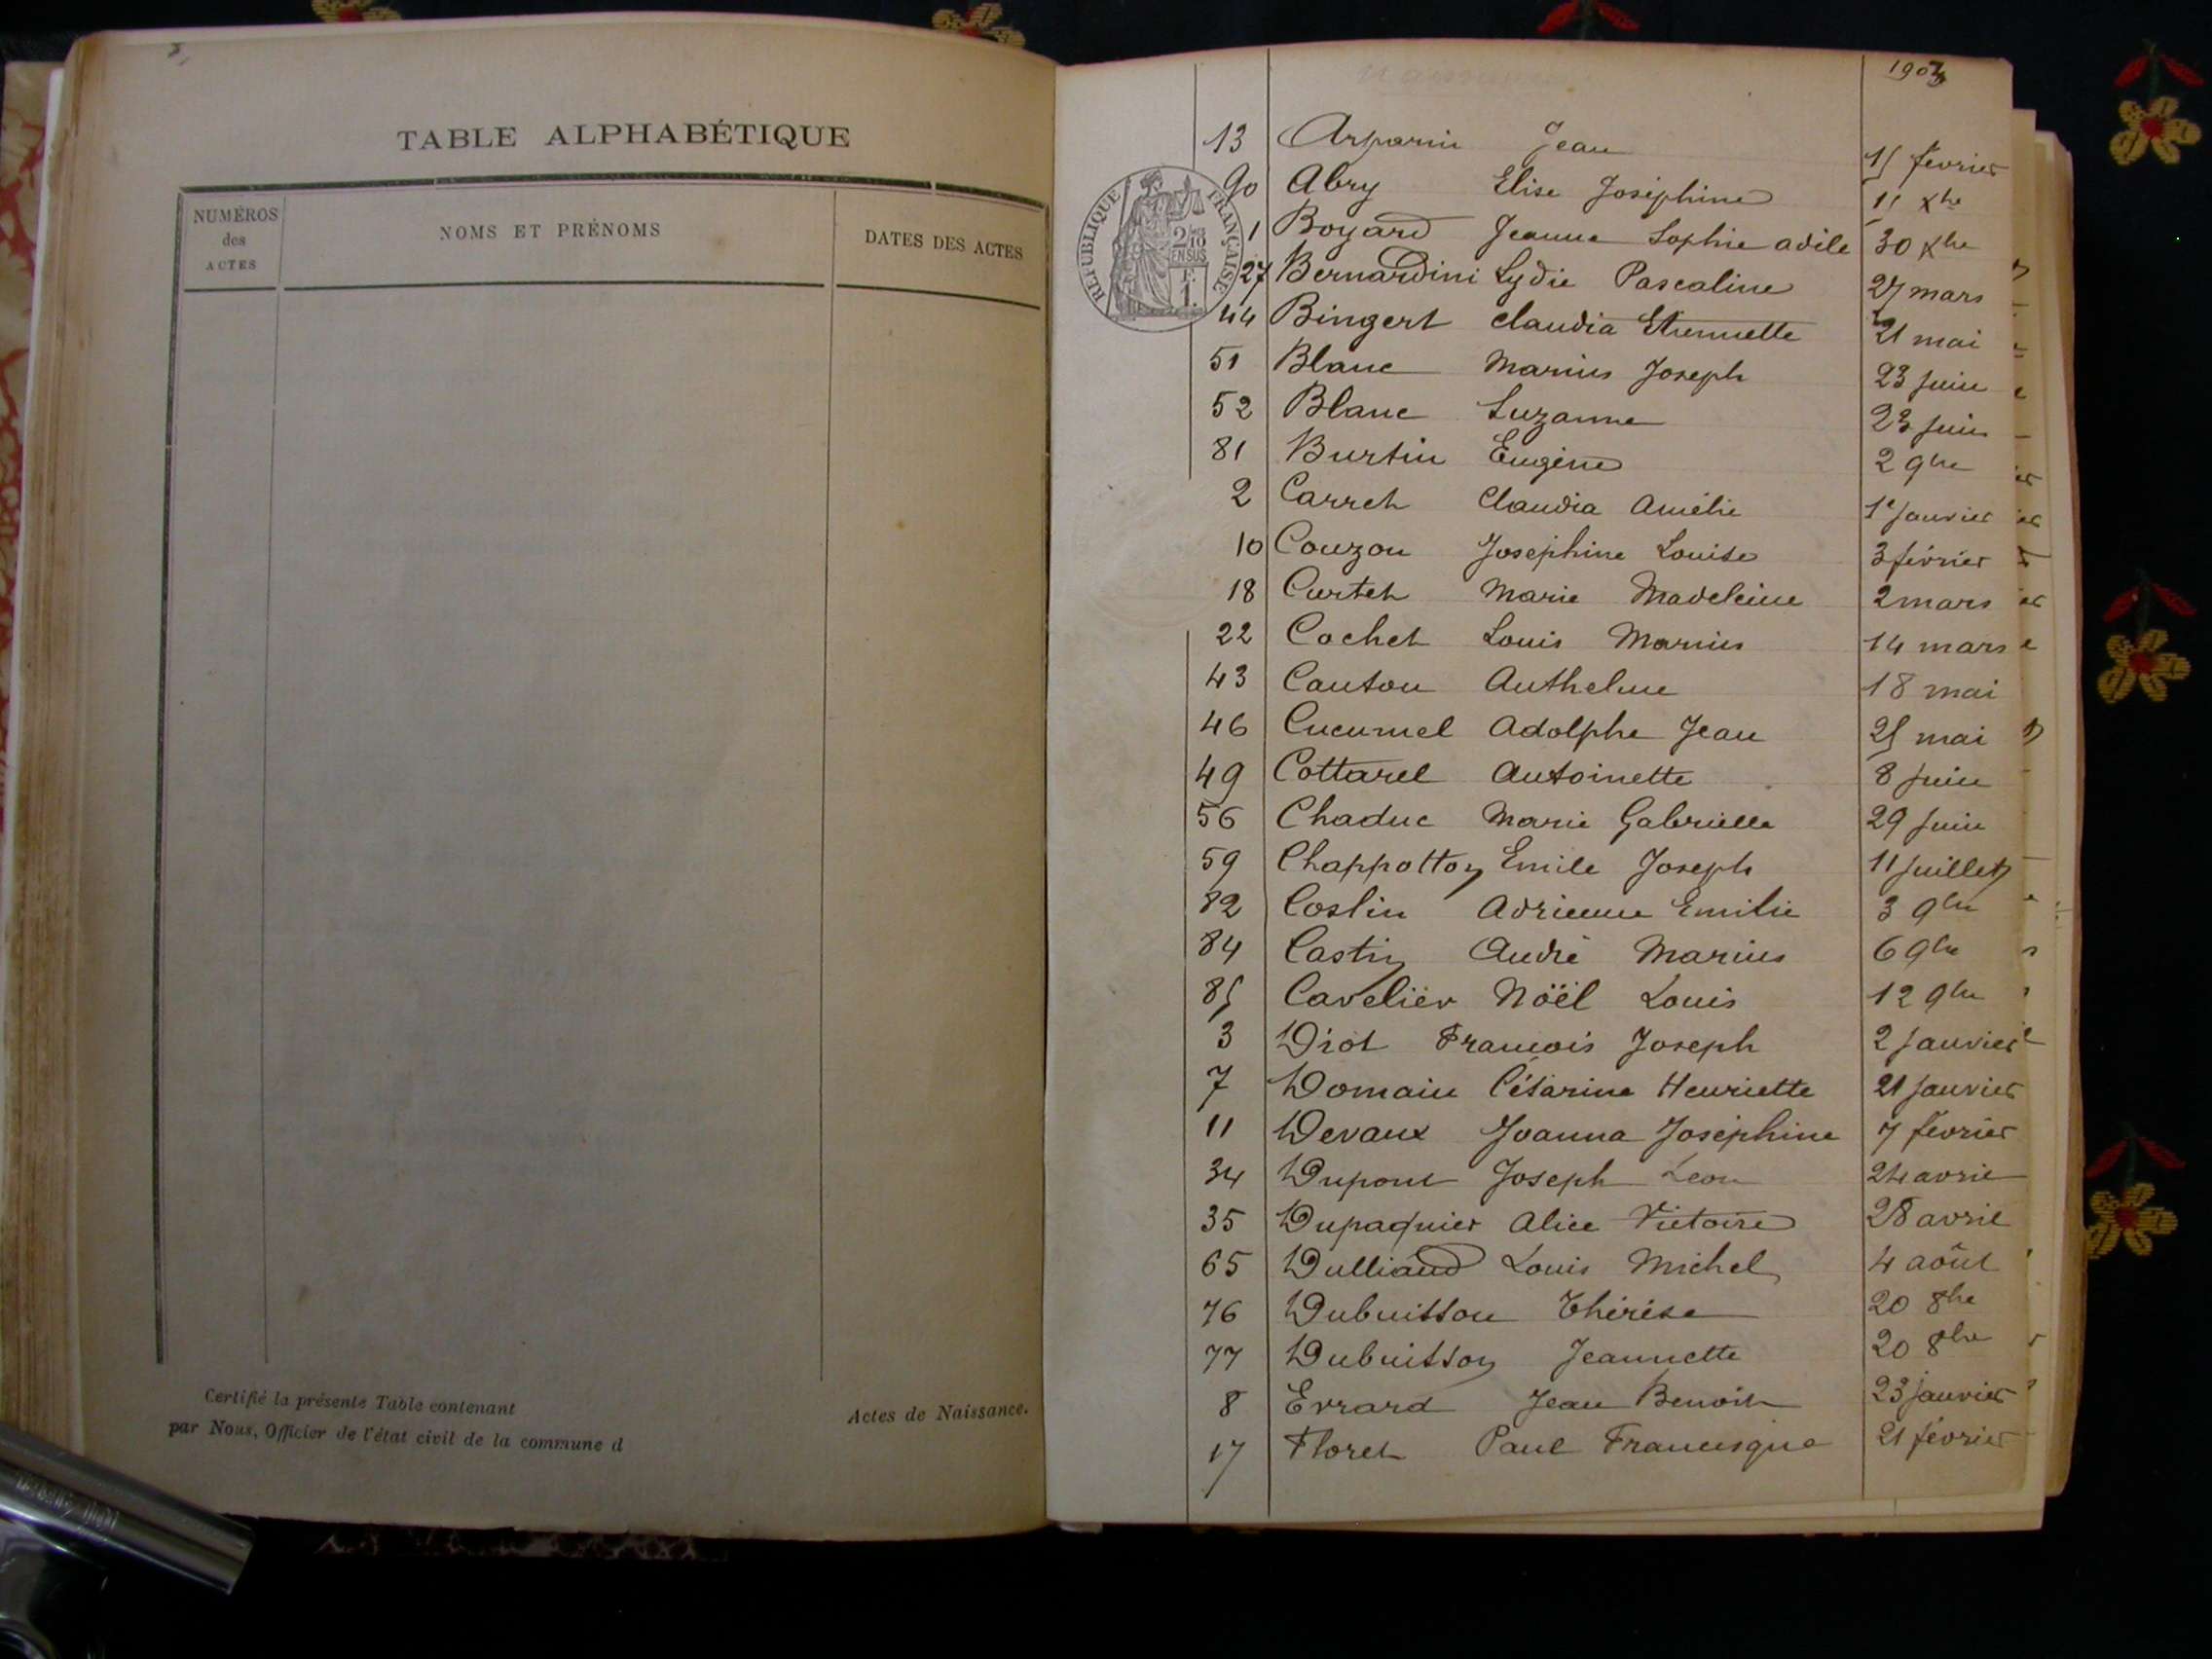 TABLE ALPHABÉTIQUE
NUMÉROS des ACTES
NOMS ET PRÉNOMS
DATES DES ACTES
Certifié la présente Table contenant Actes de Naissance.
par Nous, Officier de l'état civil de la commune d
1903
RÉPUBLIQUE FRANÇAISE
2/10 EN SUS
F. 1.
13 Arparin Jean 15 février
90 Abry Elise Joséphine 11 Xbre
1 Boyard Jeanne Sophie adèle 30 Xbre
27 Bernardini Lydie Pascaline 27 mars
44 Bingert Claudia Etiennette 21 mai
51 Blanc Marius Joseph 23 juin
52 Blanc Suzanne 23 juin
81 Burtin Eugène 2 9bre
2 Carret Claudia Amélie 1er janvier
10 Couzon Joséphine Louise 3 février
18 Curtet Marie Madeleine 2 mars
22 Cochet Louis Marius 14 mars
43 Canton Anthelme 18 mai
46 Cucumel Adolphe Jean 25 mai
49 Cottarel Antoinette 8 juin
56 Chaduc Marie Gabrielle 29 juin
59 Chappotton Emile Joseph 11 juillet
82 Coslin Adrienne Emilie 3 9bre
84 Castin André Marius 6 9bre
85 Cavelier Nöël Louis 12 9bre
3 Diot François Joseph 2 janvier
7 Domain Césarine Henriette 21 janvier
11 Devaux Joanna Joséphine 7 février
34 Dupont Joseph Leon 24 avril
35 Dupaquier Alice Victoire 28 avril
65 Dulliand Louis Michel 4 août
76 Dubuisson Thérèse 20 8bre
77 Dubuisson Jeannette 20 8bre
8 Errard Jean Benoit 23 janvier
17 Floret Paul Francisque 21 février